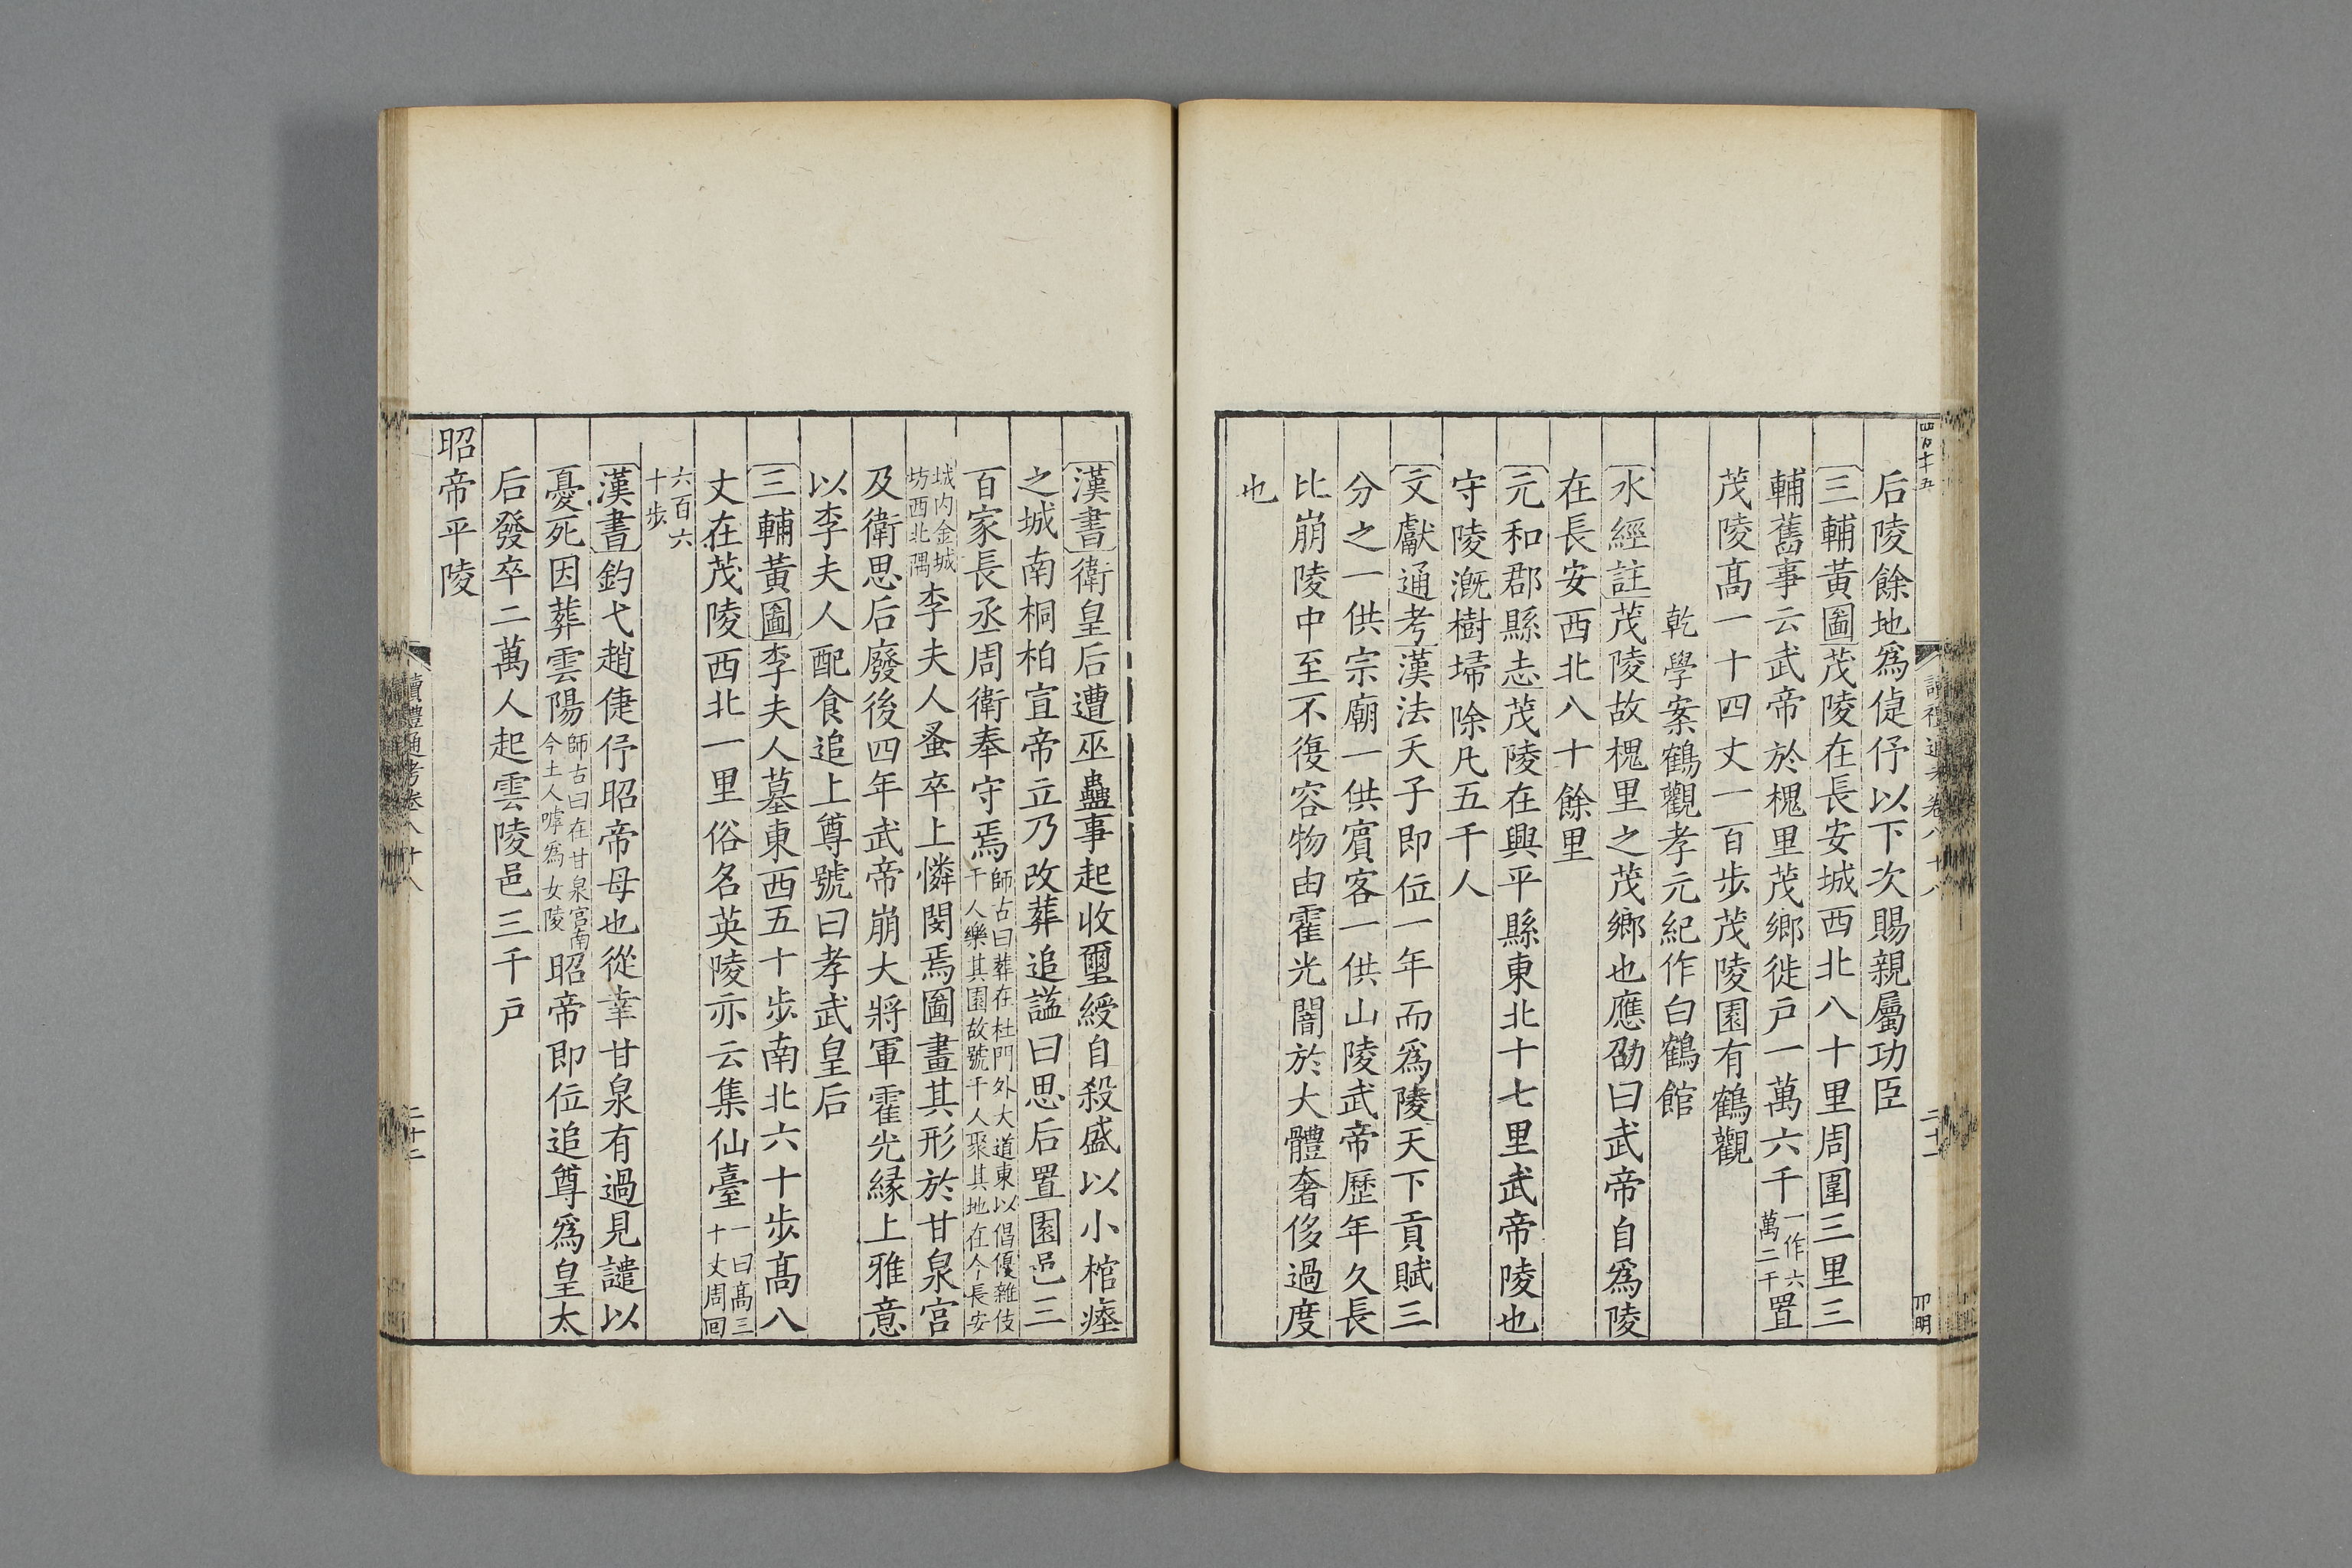 后陵餘地爲倢伃以下次賜親屬功臣
三輔黃圖茂陵在長安城西北八十里周圍三里三
輔舊事云武帝於槐里茂鄉徙戸一萬六千一作六萬二千置
茂陵髙一十四丈一百步茂陵園有鶴觀
乾學案鶴觀孝元紀作白鶴館
水經註茂陵故槐里之茂鄉也應劭曰武帝自爲陵
在長安西北八十餘里
元和郡縣志茂陵在興平縣東北十七里武帝陵也
守陵漑樹埽除凡五千人
文獻通考漢法天子即位一年而爲陵天下貢賦三
分之一供宗廟一供賓客一供山陵武帝歷年久長
比崩陵中至不復容物由霍光闇於大體奢侈過度
也
讀禮通考卷八十八
二十二
漢書衛皇后遭巫蠱事起收璽綬自殺盛以小棺瘞
之城南桐柏宣帝立乃改葬追諡曰思后置園邑三
百家長丞周衛奉守焉師古曰葬在杜門外大道東以倡優雜伎千人樂其園故號千人聚其地在今長安
城内金城坊西北隅李夫人蚤卒上憐閔焉圖畫其形於甘泉宮
及衛思后廢後四年武帝崩大將軍霍光緣上雅意
以李夫人配食追上尊號曰孝武皇后
三輔黃圖李夫人墓東西五十步南北六十步髙八
丈在茂陵西北一里俗名英陵亦云集仙臺一曰髙三十丈周回
六百六十步
漢書鈎弋趙倢伃昭帝母也從幸甘泉有過見譴以
憂死因葬雲陽師古曰在甘泉宮南今土人嘑爲女陵昭帝即位追尊爲皇太
后發卒二萬人起雲陵邑三千戸
昭帝平陵
讀禮通考卷八十八
二十二